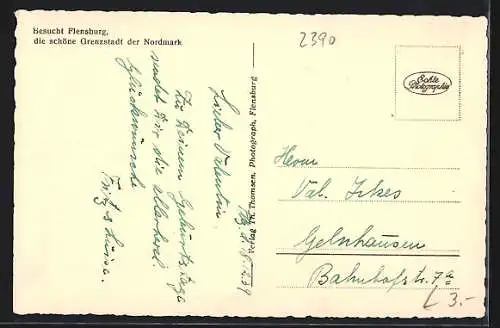 Besucht Flensburg,
die schöne Grenzstadt der Nordmark
2390
Echte
Photographie
Verlag Th. Thomsen, Photograph, Flensburg
Lieber Valentin.
Zu Deinem Geburtstage
sendet Dir die allerherzl.
Glückwünsche
Fritz u. Luise.
Herrn
Val. Jckes
Gelnhausen
Bahnhofstr. 7a
3.-